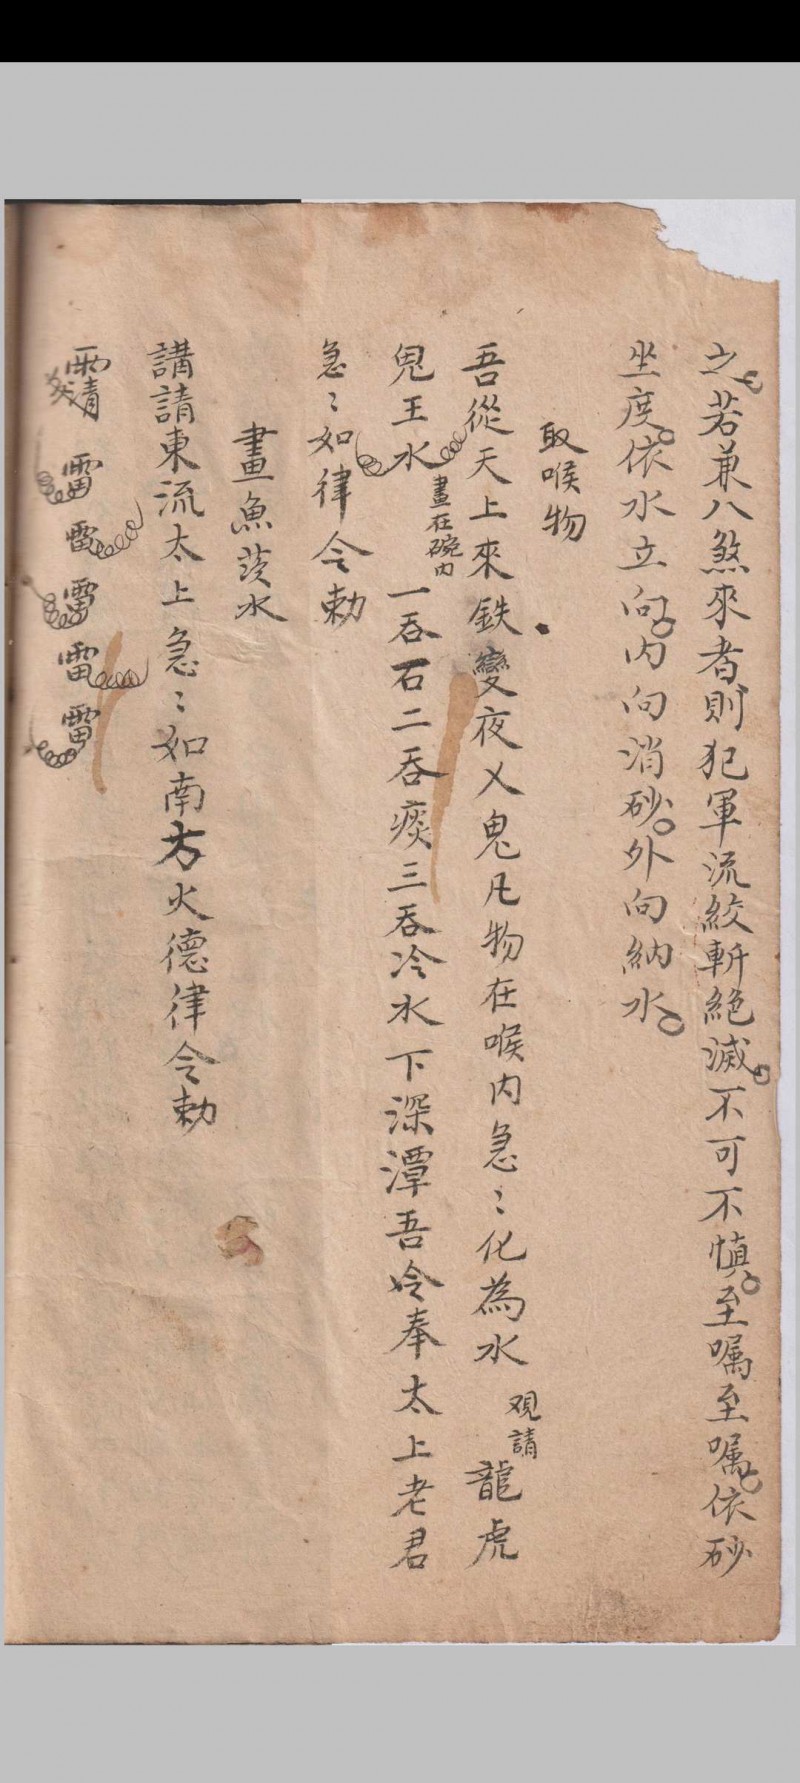 之若兼八煞來者則犯軍流絞斬絕滅不可不慎至囑至囑依砂
坐度依水立向内向消砂外向納水
取喉物
吾從天上來鉄變夜乂鬼凡物在喉内急〻化為水 观請 龍虎
鬼王水 畫在碗内 一吞石二吞痰三吞冷水下深潭吾吟奉太上老君
急〻如律令勅
畫魚茨水
講請東流太上急〻如南方火德律令勅
雷雷雷雷雷